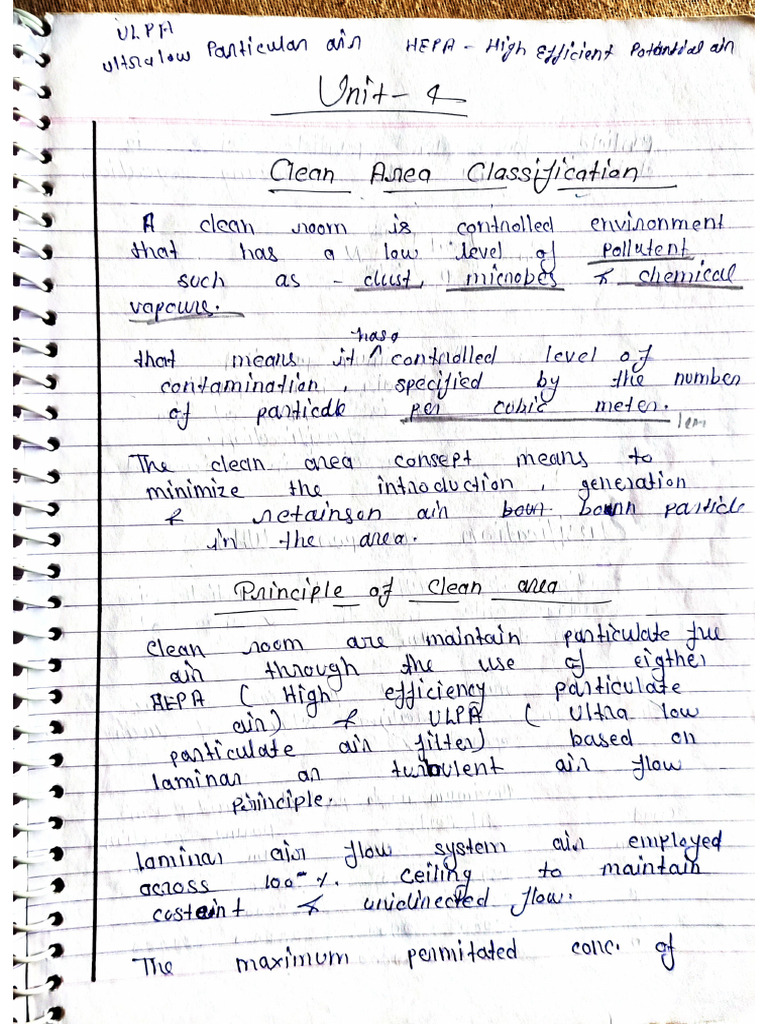 ULPA
Ultra low Particular air HEPA - High Efficient Potential air
Unit - 4
Clean Area Classification
A clean room is controlled environment
that has a low level of pollutent
such as - dust, microbes & chemical
vapours.
has a
that means it ^ controlled level of
contamination, specified by the number
of particdle per cubic meter.
The clean area consept means to
minimize the introduction, generation
& retainson air bourn particle
in the area.
Principle of Clean area
Clean room are maintain particulate free
air through the use of eigther
HEPA (High efficiency particulate
air) & ULPA (ultra low
particulate air filter) based on
laminar or turbulent air flow
Principle.
laminar air flow system air employed
across 100% ceiling to maintain
costeint & unidirected flow.
The maximum permitated conc. of